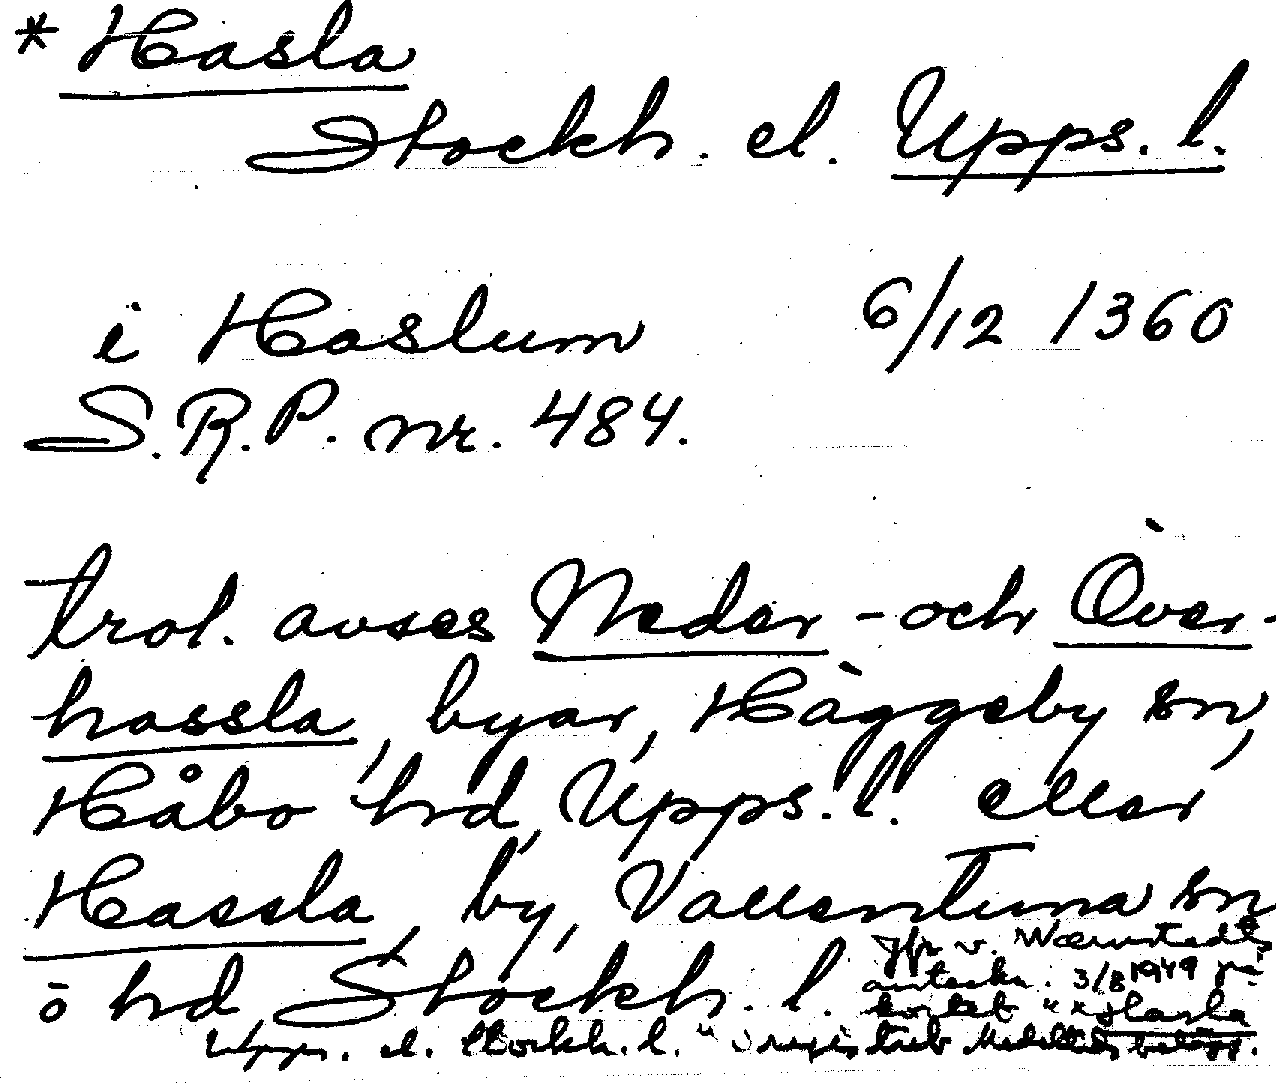 * Hasla
Stockh. el. Upps. l.
i Haslum 6/12 1360
S.R.P. nr. 484.
trol. avses Neder- och Över-
hassla, byar, Häggeby sn,
Håbo hrd, Upps. l. eller
Hassla, by, Vallentuna sn
ö hrd, Stockh. l.
Jfr v. Wærnstedts
anteckn. 3/8 1949 på
kortet "*Hasla
Upps. el. Stockh. l." i registret Medeltids belägg.